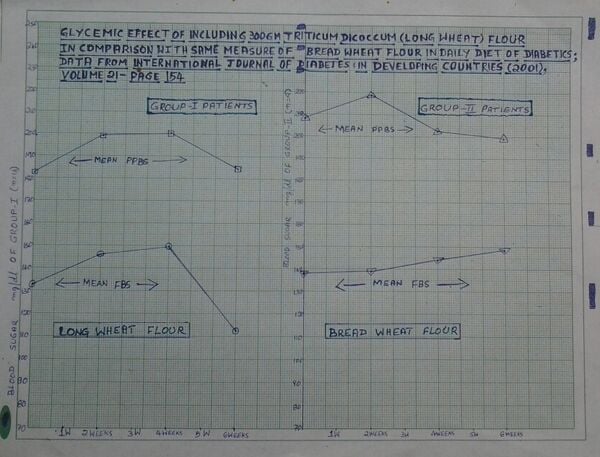 GLYCEMIC EFFECT OF INCLUDING 300GM TRITICUM DICOCCUM (LONG WHEAT) FLOUR
IN COMPARISON WITH SAME MEASURE OF BREAD WHEAT FLOUR IN DAILY DIET OF DIABETICS;
DATA FROM INTERNATIONAL JOURNAL OF DIABETES IN DEVELOPING COUNTRIES (2001),
VOLUME 21- PAGE 154
GROUP-I PATIENTS
GROUP-II PATIENTS
← MEAN PPBS →
← MEAN PPBS →
← MEAN FBS →
← MEAN FBS →
LONG WHEAT FLOUR
BREAD WHEAT FLOUR
BLOOD SUGAR mg/dl OF GROUP-I
BLOOD SUGAR mg/dl OF GROUP-II
1W 2WEEKS 3W 4WEEKS 5W 6WEEKS
1W 2WEEKS 3W 4WEEKS 5W 6WEEKS